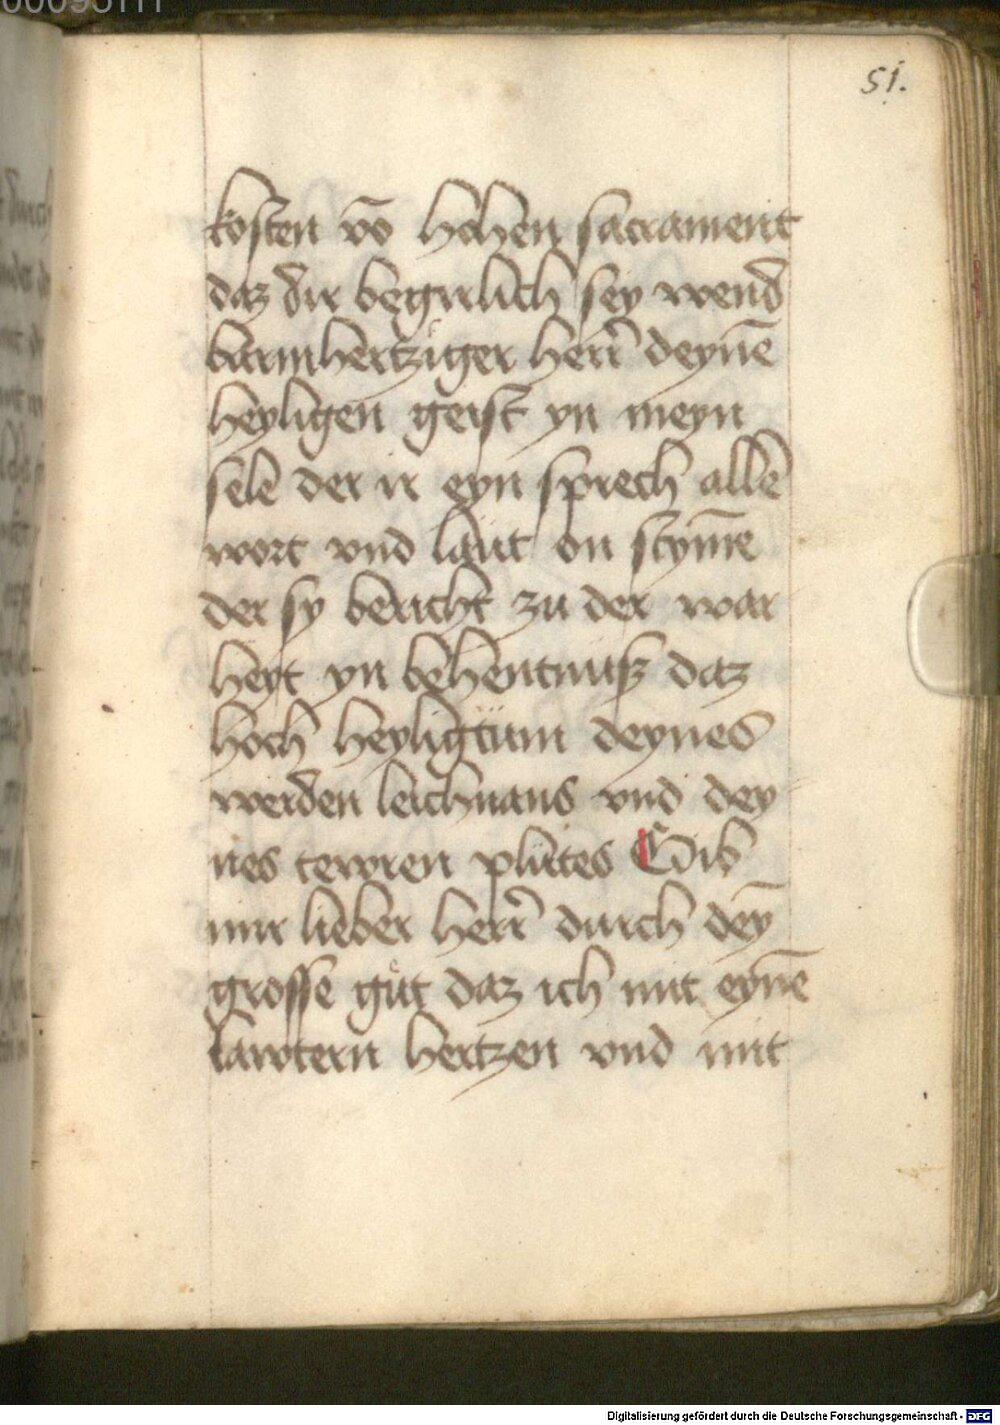 51.
kosten vō hohen sacrament
daz dir begirlich sey wend
barmhertziger herr̄ deynē
heyligen geist yn meyn
sele der ir eyn sprech allē
wort vnd laut on stym̄e
der sy bericht zu der war
heyt yn behentnuß daz
hoch heyligtüm deynes
werden leichnans vnd dey
nes tewren plutes Gib
mir lieber herr̄ durch deȳ
grosse güt daz ich mit eynē
lawtern hertzen vnd mit
Digitalisierung gefördert durch die Deutsche Forschungsgemeinschaft - DFG